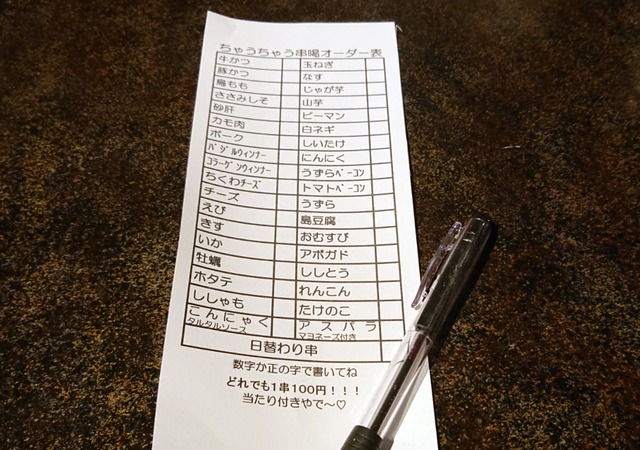 ちゅうちゅう串喝オーダー表
牛かつ 玉ねぎ
豚かつ なす
鳥もも じゃが芋
ささみしそ 山芋
砂肝 ピーマン
カモ肉 白ネギ
ポーク しいたけ
バジルウィンナー にんにく
コラーゲンウィンナー うずらベーコン
ちくわチーズ トマトベーコン
チーズ うずら
えび 島豆腐
きす おむすび
いか アボガド
牡蠣 ししとう
ホタテ れんこん
ししゃも たけのこ
こんにゃく アスパラ
タルタルソース マヨネーズ付き
日替わり串
数字か正の字で書いてね
どれでも1串100円！！！
当たり付きやで〜♡